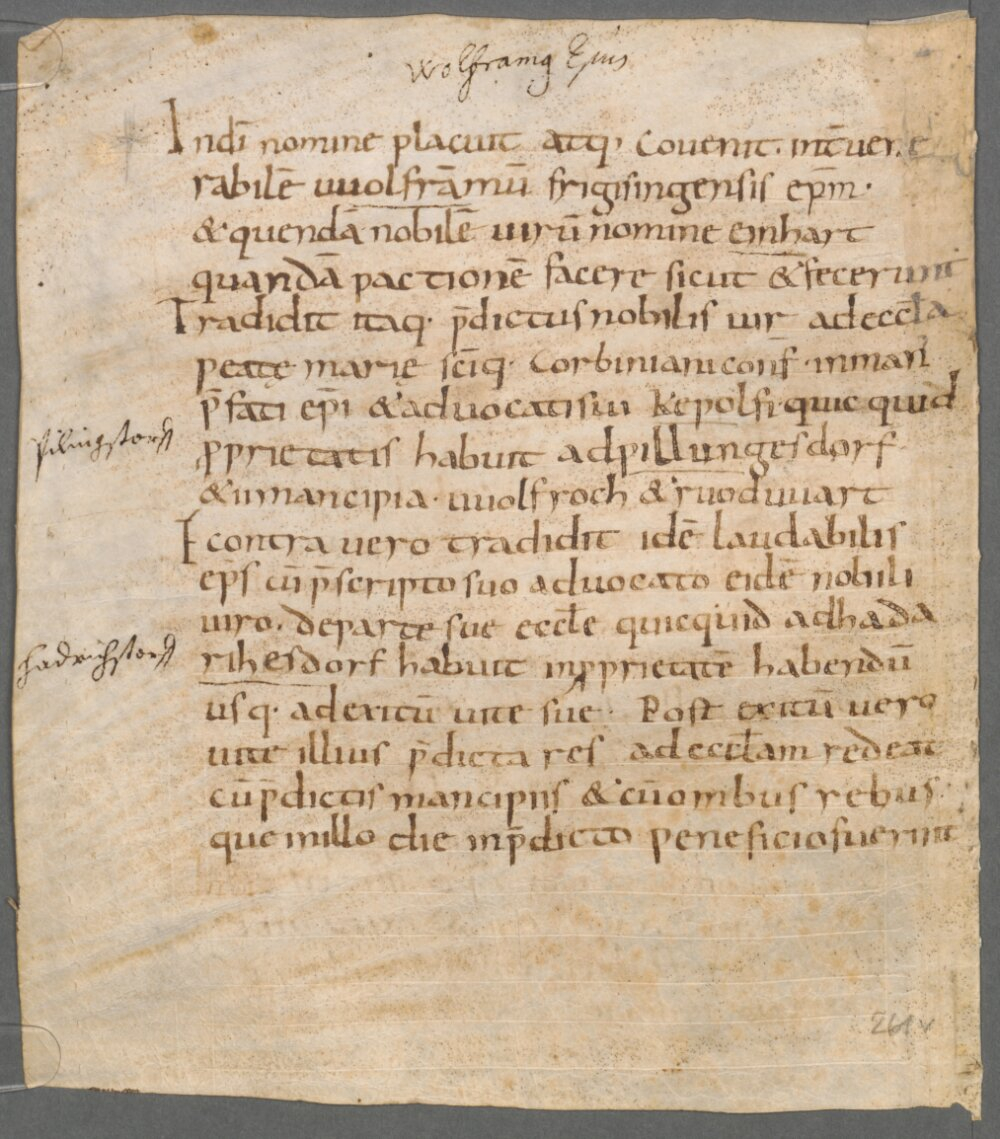 Wolframꝯ Epus
Indi͞ nomine placuit atq· Covenit· int͞ vene
rabilē uuolfrāmū frigisingensis ep͞m·
& quendā nobilē uirū nomine einhart
quandā pactionē facere sicut & fecerunt
Tradidit itaq· p͞dictus nobilis uir ad eccl͞a
peatę marię sc͞iq· Corbiniani conf͞· in man͞
p͞fati ep͞i & aduocati sui Kepolfi· quic quid
ꝓprietatis habuit ad pillungesdorf
& ii mancipia· uuolfroch & ruoduuart
Econtra vero tradidit idē laudabilis
ep͞s cū p͞scripto suo aduocato eidē nobili
uiro· de parte sue eccl͞e quicquid ad hada
Pilingstorff
rihesdorf habuit in ꝓprietatē habendū
hadrichstorff
usq· ad exitū uite sue· Post exitū vero
uite illius p͞dicta res ad eccl͞am redeat
cū p͞dictis mancipiis & cū omibus rebus·
que in illo die in p͞dicto peneficio fuerint
261v